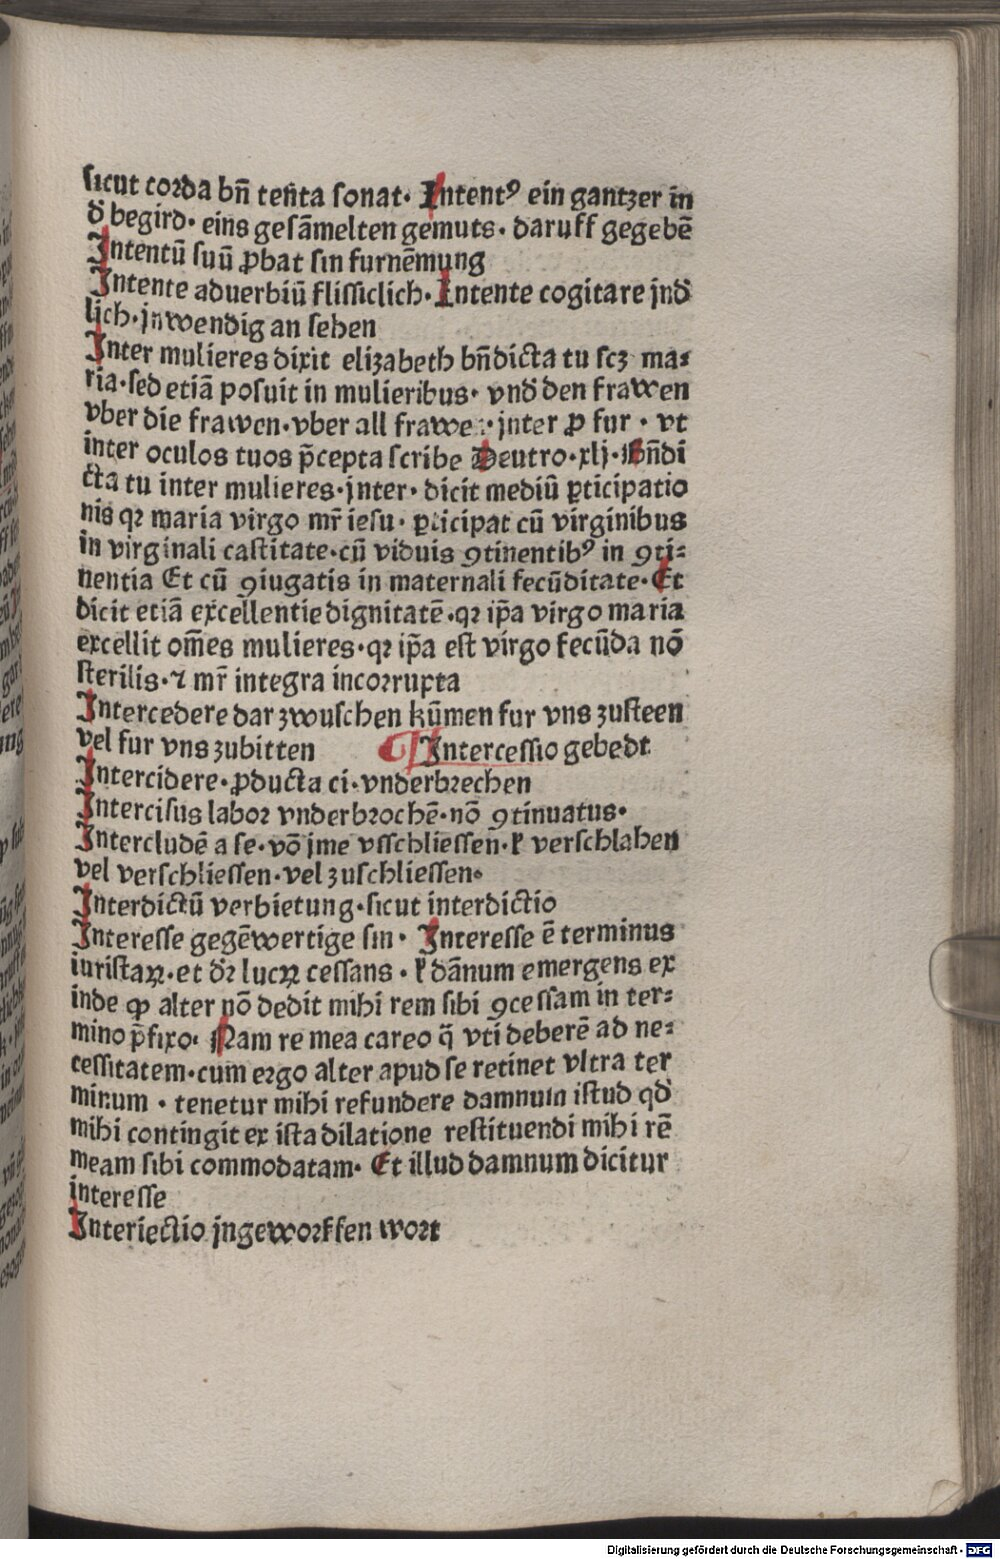 sicut corda bn̄ ten̄ta sonat· Intentꝰ ein gantzer in̄
d̕ begird· eins gesāmelten gemuts· daruff gegebē
Intentū suū ꝓbat sin furnēmung
Intente aduerbiū flissiclich· Intente cogitare jnd̕
lich·jnwendig an sehen
Inter mulieres dixit elizabeth bn̄dicta tu scꝫ ma⸗
ria·sed etiā posuit in mulieribus· vnd̕ den frawen
vber die frawen·vber all frawe ·jnter ꝓ fur · vt
inter oculos tuos p̄cepta scribe Deutro·xlj·Bn̄di
cta tu inter mulieres·jnter· dicit mediū ꝑticipatio
nis qꝛ maria virgo mr̄ iesu· ꝑticipat cū virginibus
in virginali castitate·cū viduis ꝯtinentibꝰ in ꝯti⸗
nentia Et cū ꝯiugatis in maternali fecūditate·Et
dicit etiā excellentie dignitatē·qꝛ ip̄a virgo maria
excellit om̄es mulieres·qꝛ ip̄a est virgo fecūda nō
sterilis·⁊ mr̄ integra incorrupta
Intercedere dar zwuschen kūmen fur vns zusteen
vel fur vns zubitten ¶ Intercessio gebedt
Intercidere·ꝓducta ci·vnderbrechen
Intercisus labor vnderbrochē·nō ꝯtinuatus·
Intercludē a se·vō jme vsschliessen̄·ł verschlahen
vel verschliessen·vel zuschliessen·
Interdictū verbietung·sicut interdictio
Interesse gegēwertige sin· Interesse ē terminus
iuristaꝝ·et dr̄ lucꝝ cessans·ł dānum emergens ex
inde ꝙ alter nō dedit mihi rem sibi ꝯcessam in ter⸗
mino p̄fixo· Nam re mea careo q̄ vti deberē ad ne⸗
cessitatem·cum ergo alter apud se retinet vltra ter
minum · tenetur mihi refundere damnum istud qd̕
mihi contingit ex ista dilatione restituendi mihi rē
meam sibi commodatam· Et illud damnum dicitur
interesse
Interiectio jngeworffen wort
Digitalisierung gefördert durch die Deutsche Forschungsgemeinschaft - DFG